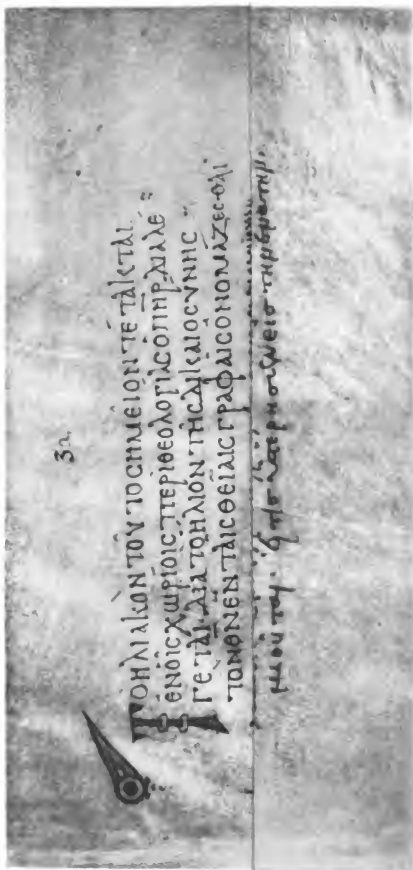 ΤΟ ΗΛΙΑΚΟΝ ΤΟΥΤΟ CΗΜΕΙΟΝ ΤΕΤΑΚΤΑΙ
ΕΝ ΟΙC ΧΩΡΙΟΙC ΠΕΡΙ ΘΕΟΛΟΓΙΑC Ο ΠΗΡ ΔΙΑΛΕ
ΓΕΤΑΙ· ΔΙΑ ΤΟ ΗΛΙΟΝ ΤΗC ΔΙΚΑΙΟCΥΝΗC
ΤΟΝ ΘΝ ΕΝ ΤΑΙC ΘΕΙΑΙC ΓΡΑΦΑΙC ΟΝΟΜΑΖΕCΘΑΙ